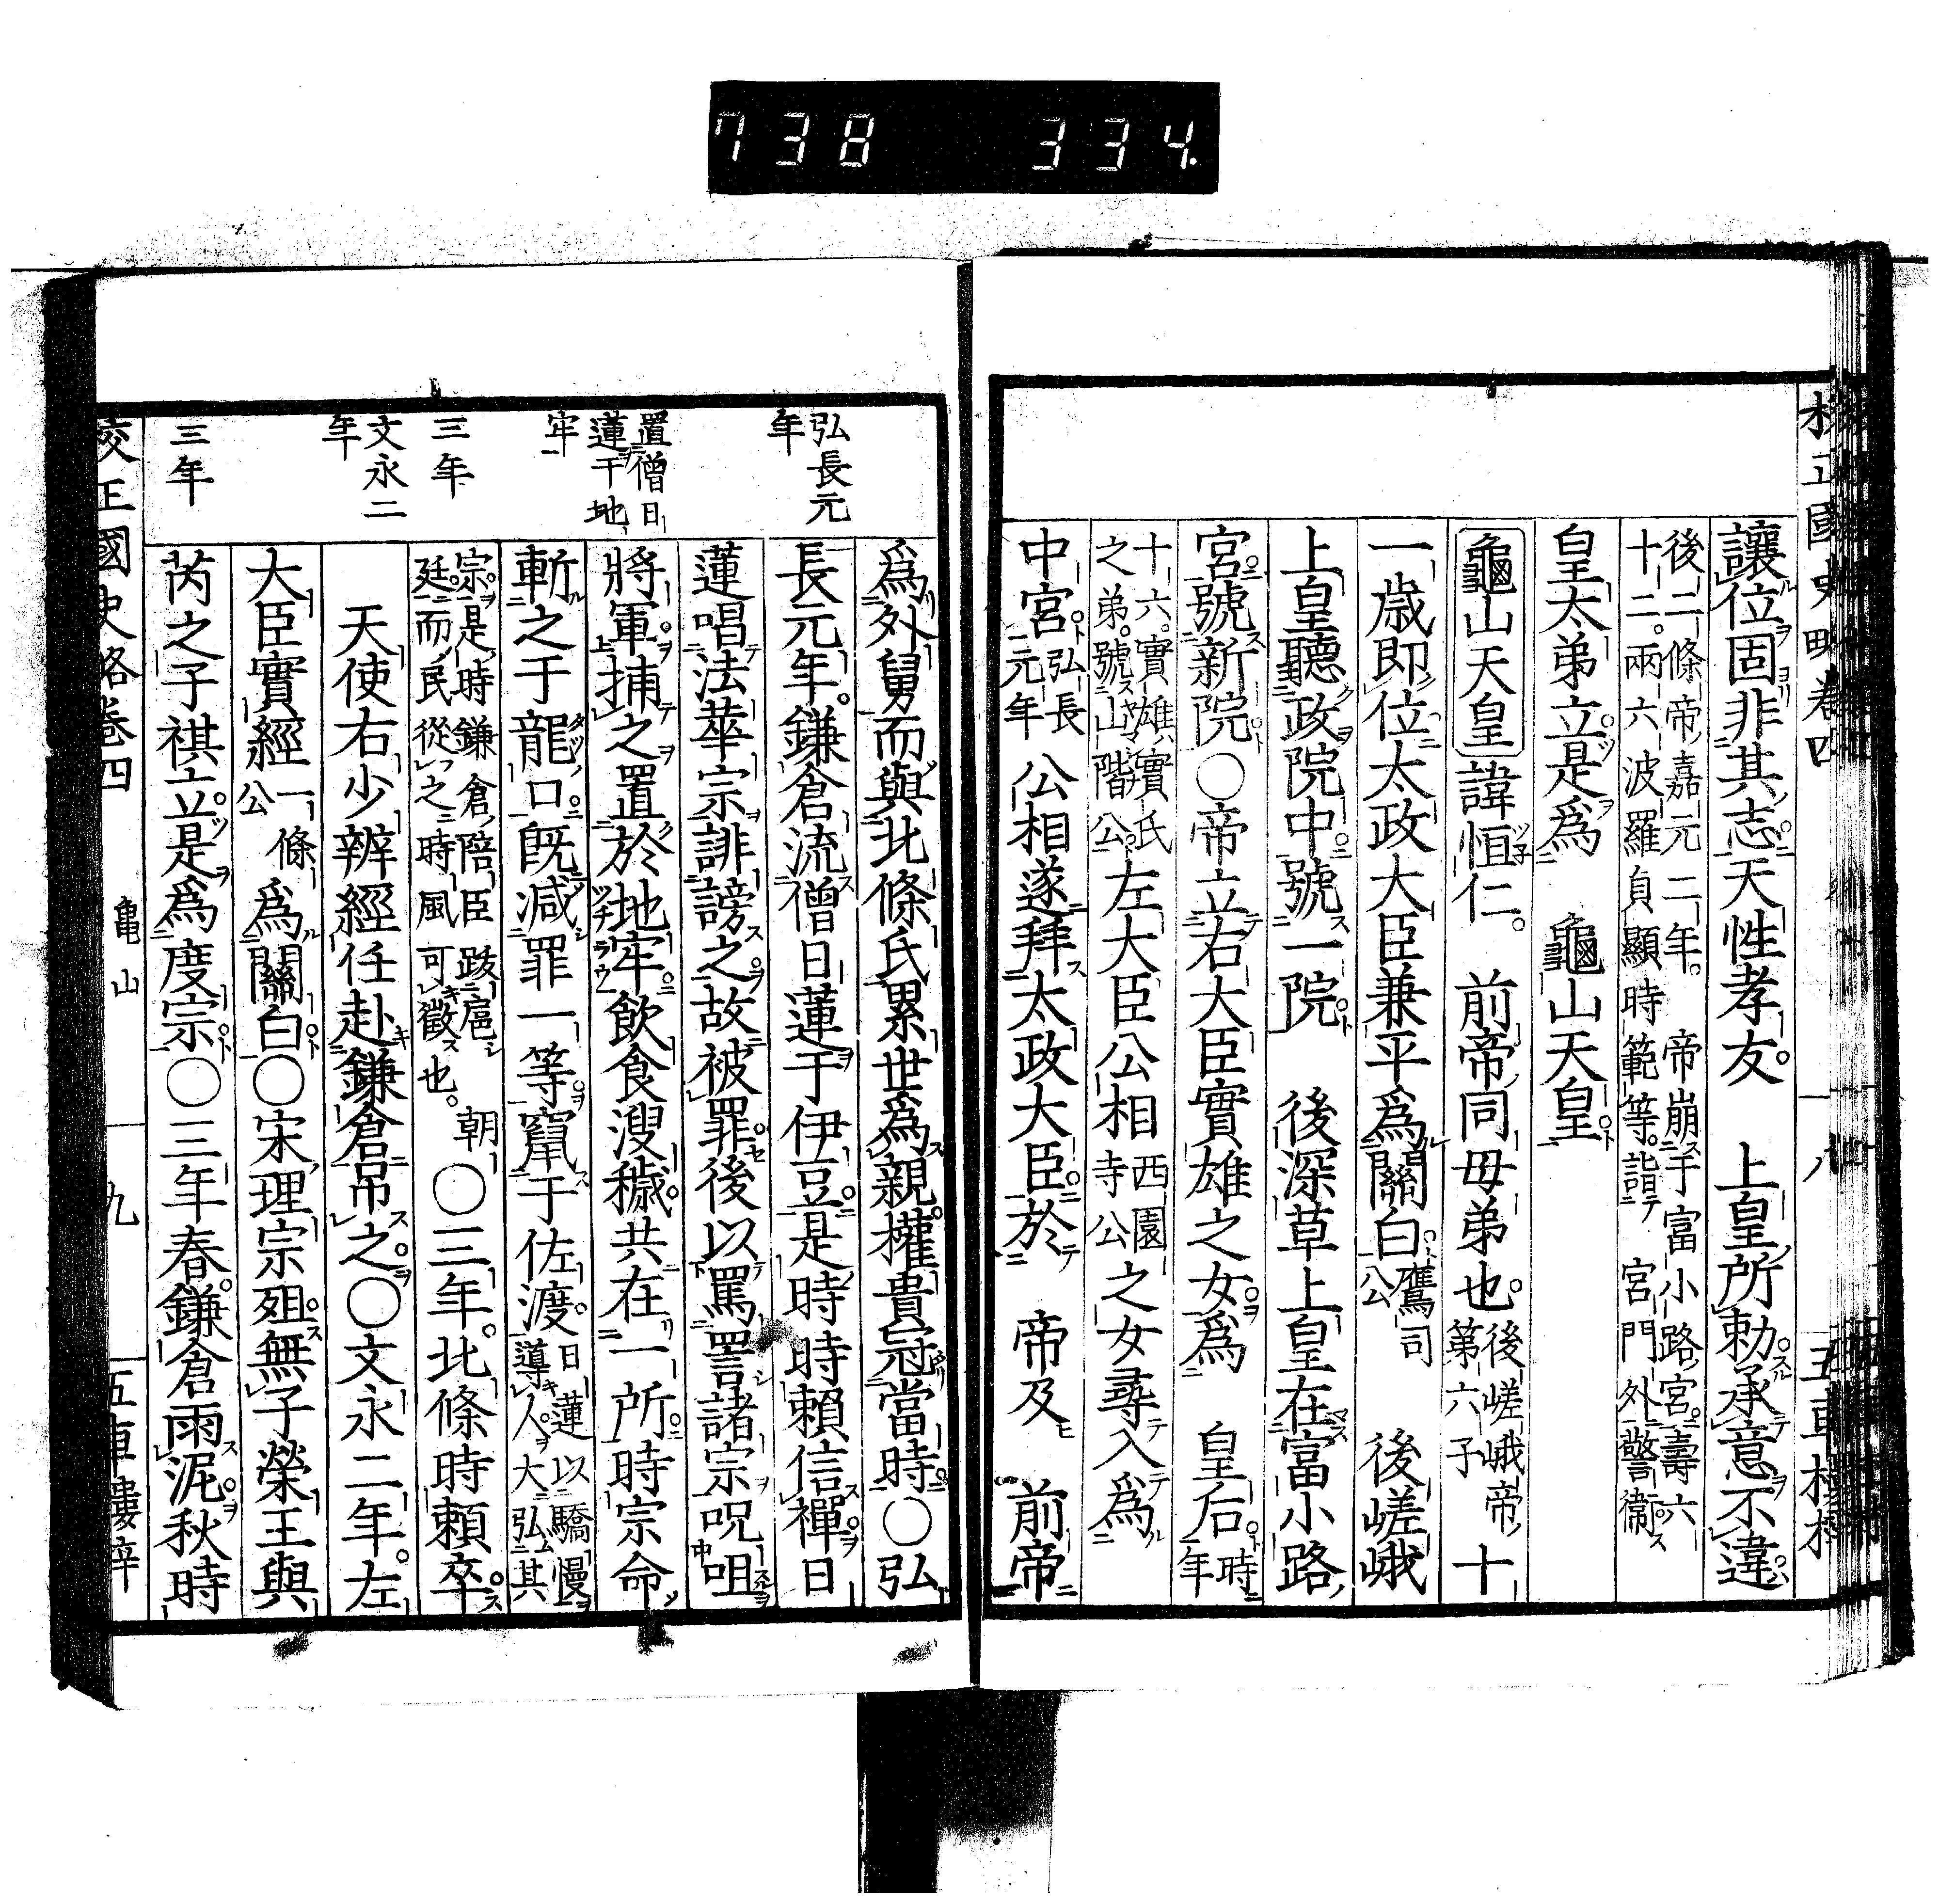 738 334.
校正國史略卷四
讓位固非其志天性孝友。 上皇所勅承意不違
後二條帝嘉元二年。 帝崩于富小路宮壽六
十二。兩六波羅貞顯時範等。詣 宮門外警衞
皇太弟立是爲 龜山天皇
龜山天皇諱恒仁。 前帝同母弟也。後嵯峨帝第六子十
一歲即位太政大臣兼平爲關白鷹司公 後嵯峨
上皇聽政院中號一院 後深草上皇在富小路
宮號新院○帝立右大臣實雄之女爲 皇后時年
十六。實雄實氏之弟。號山階公。左大臣公相西園寺公之女尋入爲
中宮弘長元年公相遂拜太政大臣於 帝及 前帝
爲外舅而與北條氏累世爲親。權貴冠當時○弘
長元年。鎌倉流僧日蓮于伊豆是時時賴信禪日
蓮唱法華宗誹謗之故被罪後以罵詈諸宗呪咀
將軍捕之置於地牢飲食溲穢共在一所時宗命
斬之于龍口既減罪一等竄于佐渡日蓮以驕慢導人。大弘其
宗是時鎌倉陪臣跋扈 朝
廷而民從之時風可徵也。○三年。北條時賴卒
天使右少辨經任赴鎌倉吊之○文永二年。左
大臣實經一條公爲關白○宋理宗殂無子榮王與
芮之子祺立是爲度宗○三年春鎌倉雨泥秋時
弘長元年
置僧日蓮于地牢
三年
文永二年
三年
校正國史略卷四 龜山 九 五車樓梓